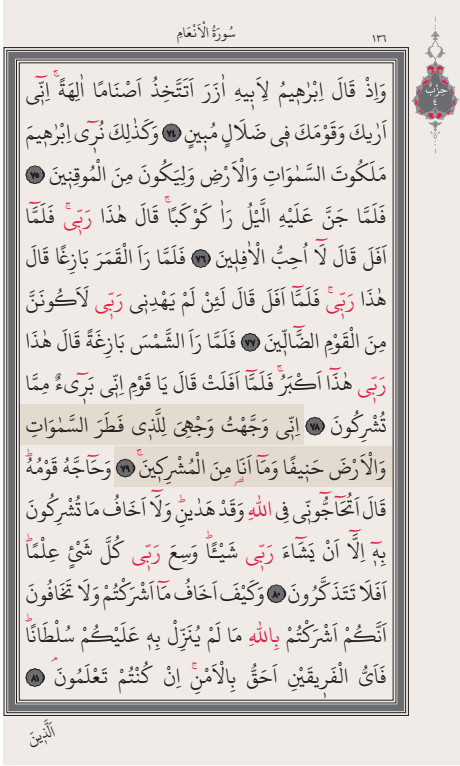 سُورَةُ الْاَنْعَامِ
١٣٦
حِزْبُ
٤
وَاِذْ قَالَ اِبْرٰهٖيمُ لِاَبٖيهِ اٰزَرَ اَتَتَّخِذُ اَصْنَامًا اٰلِهَةًۚ اِنّٖٓي
اَرٰيكَ وَقَوْمَكَ فٖي ضَلَالٍ مُبٖينٍ ﴿٧٤﴾ وَكَذٰلِكَ نُرٖٓي اِبْرٰهٖيمَ
مَلَكُوتَ السَّمٰوَاتِ وَالْاَرْضِ وَلِيَكُونَ مِنَ الْمُوقِنٖينَ ﴿٧٥﴾
فَلَمَّا جَنَّ عَلَيْهِ الَّيْلُ رَاٰ كَوْكَبًاۚ قَالَ هٰذَا رَبّٖيۚ فَلَمَّٓا
اَفَلَ قَالَ لَٓا اُحِبُّ الْاٰفِلٖينَ ﴿٧٦﴾ فَلَمَّا رَاَ الْقَمَرَ بَازِغًا قَالَ
هٰذَا رَبّٖيۚ فَلَمَّٓا اَفَلَ قَالَ لَئِنْ لَمْ يَهْدِنٖي رَبّٖي لَاَكُونَنَّ
مِنَ الْقَوْمِ الضَّٓالّٖينَ ﴿٧٧﴾ فَلَمَّا رَاَ الشَّمْسَ بَازِغَةً قَالَ هٰذَا
رَبّٖي هٰذَٓا اَكْبَرُۚ فَلَمَّٓا اَفَلَتْ قَالَ يَا قَوْمِ اِنّٖي بَرٖٓيءٌ مِمَّا
تُشْرِكُونَ ﴿٧٨﴾ اِنّٖي وَجَّهْتُ وَجْهِيَ لِلَّذٖي فَطَرَ السَّمٰوَاتِ
وَالْاَرْضَ حَنٖيفًا وَمَٓا اَنَا۬ مِنَ الْمُشْرِكٖينَۚ ﴿٧٩﴾ وَحَٓاجَّهُ قَوْمُهُؕ
قَالَ اَتُحَٓاجُّٓونّٖي فِي اللّٰهِ وَقَدْ هَدٰينِؕ وَلَٓا اَخَافُ مَا تُشْرِكُونَ
بِهٖٓ اِلَّٓا اَنْ يَشَٓاءَ رَبّٖي شَيْـًٔاؕ وَسِعَ رَبّٖي كُلَّ شَيْءٍ عِلْمًاؕ
اَفَلَا تَتَذَكَّرُونَ ﴿٨٠﴾ وَكَيْفَ اَخَافُ مَٓا اَشْرَكْتُمْ وَلَا تَخَافُونَ
اَنَّكُمْ اَشْرَكْتُمْ بِاللّٰهِ مَا لَمْ يُنَزِّلْ بِهٖ عَلَيْكُمْ سُلْطَانًاؕ
فَاَيُّ الْفَرٖيقَيْنِ اَحَقُّ بِالْاَمْنِۚ اِنْ كُنْتُمْ تَعْلَمُونَۘ ﴿٨١﴾
اَلَّذٖينَ